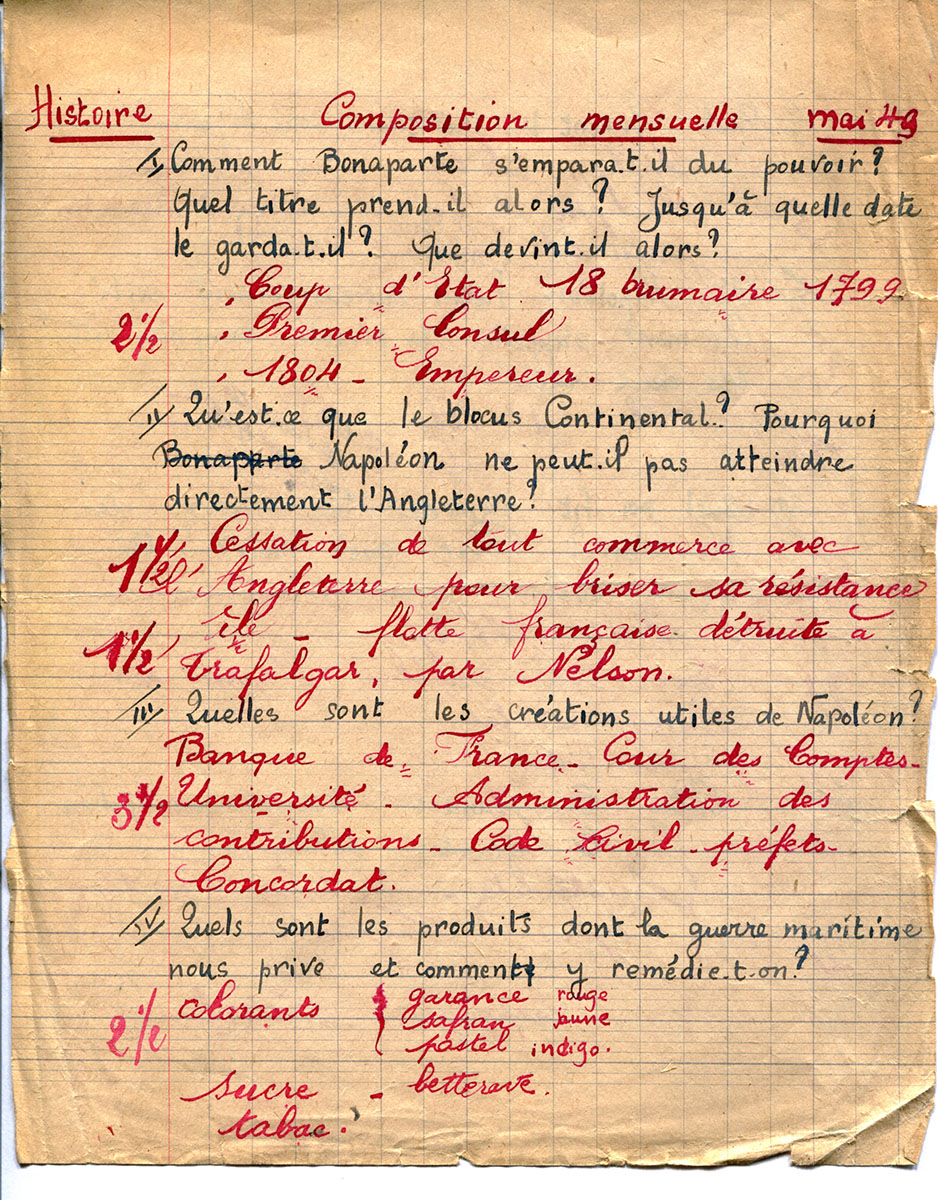 Histoire Composition mensuelle mai 49
I/ Comment Bonaparte s'empara.t.il du pouvoir?
Quel titre prend-il alors? Jusqu'à quelle date
le garda.t.il? Que devint.il alors?
, Coup d'Etat 18 brumaire 1799
2 1/2 , Premier Consul
, 1804 - Empereur.
II/ Qu'est.ce que le blocus Continental.? Pourquoi
Bonaparte Napoléon ne peut.il pas atteindre
directement l'Angleterre?
Cessation de tout commerce avec
1 1/2 l'Angleterre pour briser sa résistance
île - flotte française détruite à
1 1/2 Trafalgar, par Nelson.
III/ Quelles sont les créations utiles de Napoléon?
Banque de France - Cour des Comptes -
3 1/2 Université - Administration des
contributions - Code Civil - préfets -
Concordat.
IV/ Quels sont les produits dont la guerre maritime
nous prive et comment y remédie.t.on?
colorants { garance rouge
safran jaune
2 1/2 pastel indigo.
sucre - betterave.
tabac.